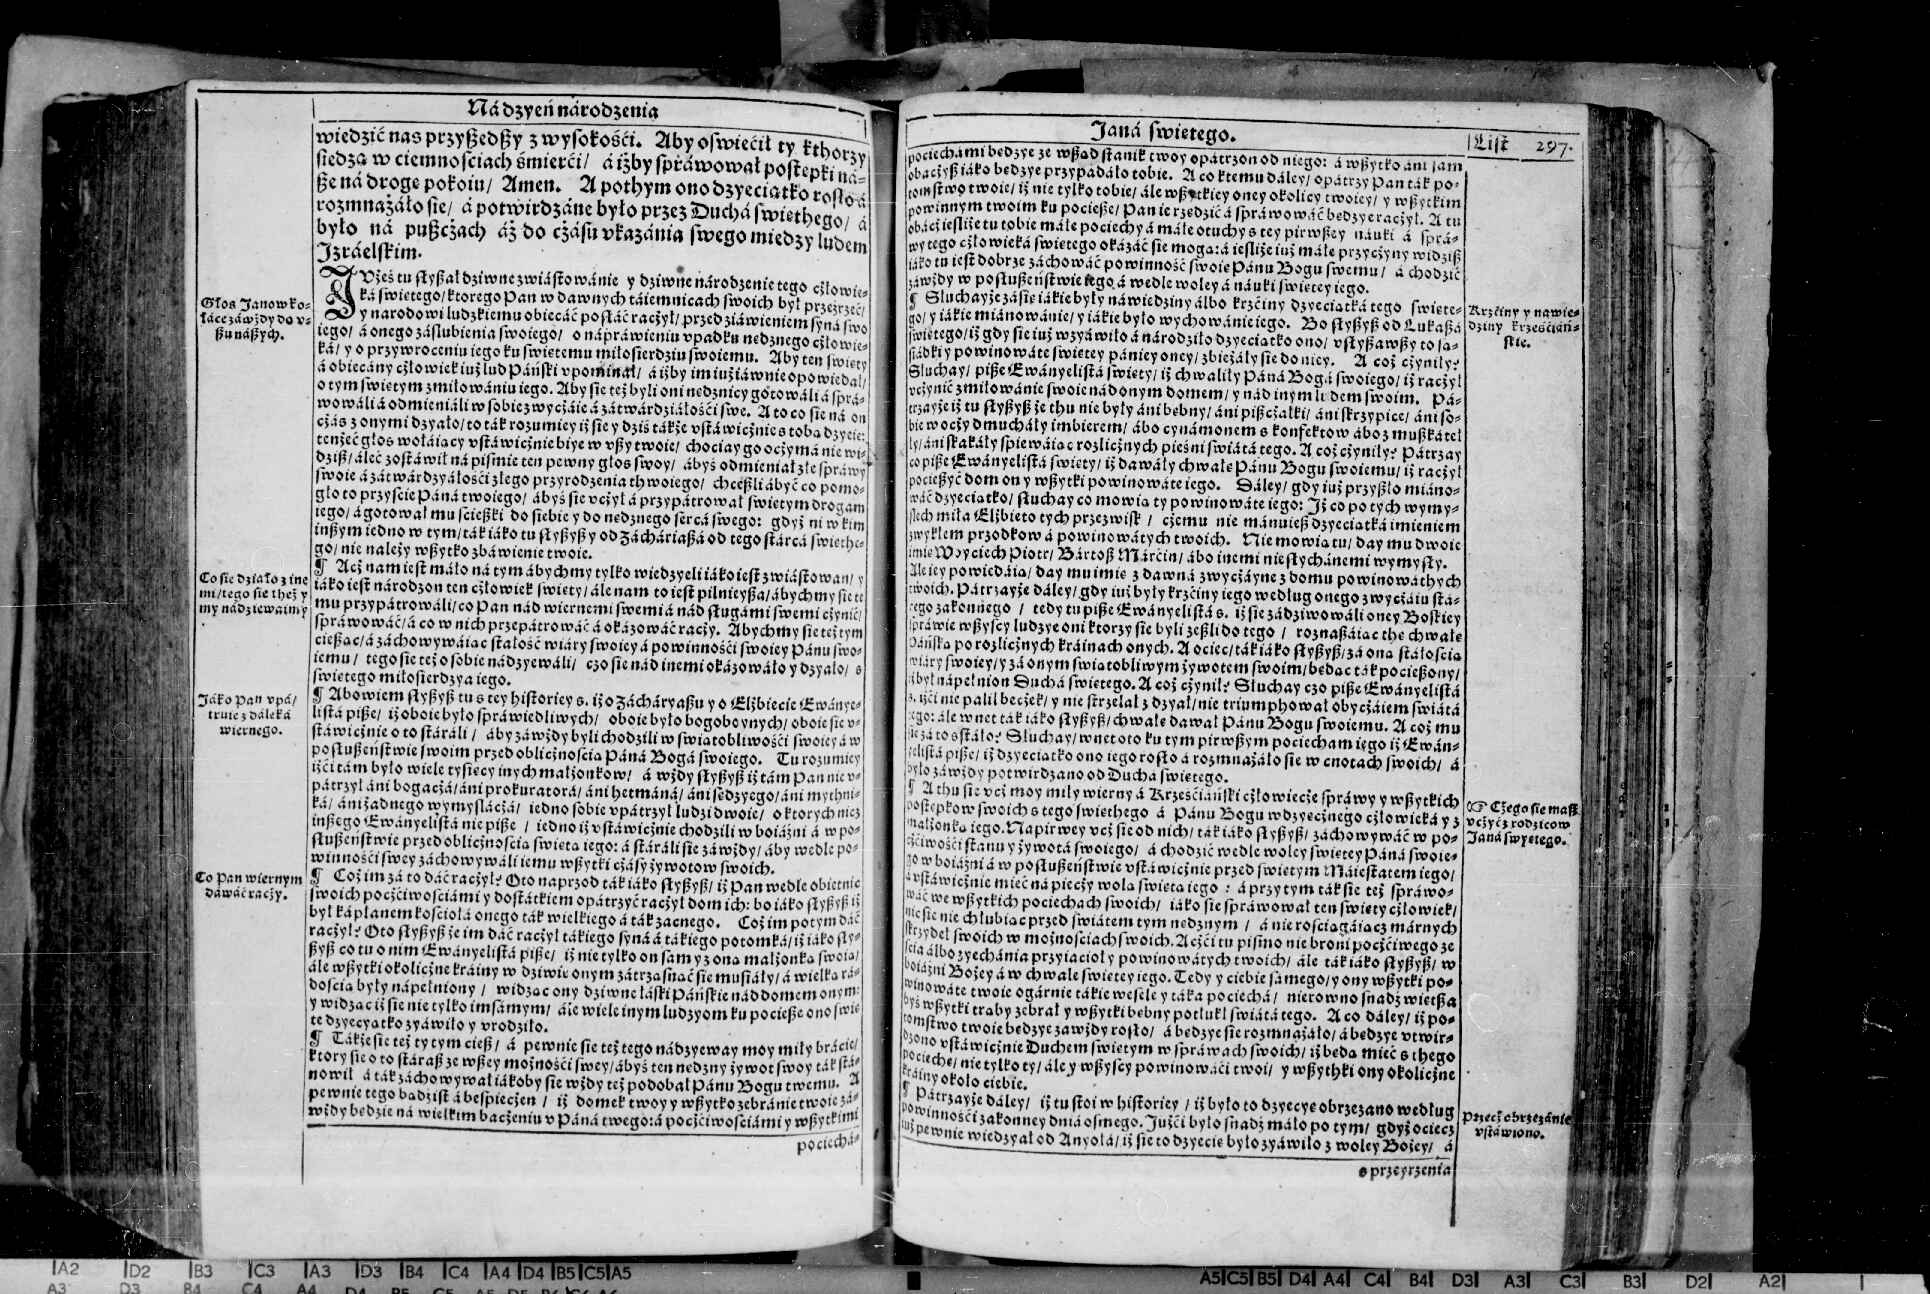 Ná dzyeń národzenia
wiedzić nas przyszedszy z wysokośći. Aby oświećił ty kthorzy
siedzą w ciemnosciach śmierći/ á iżby spráwował postepki ná-
sze ná droge pokoiu/ Amen. A pothym ono dzyeciatko rosło á
rozmnażáło sie/ á potwirdzáne było przez Duchá swiethego/ á
było ná puszcżach áż do cżásu vkazánia swego miedzy ludem
Jzráelskim.
Głos Janow ko-
łáce záwżdy do v-
szu nászych.
JVżeś tu słyszał dziwne zwiástowánie y dziwne národzenie tego cżłowie-
ká swietego/ ktorego Pan w dawnych táiemnicach swoich był przeźrzeć/
y narodowi ludzkiemu obiecáć posłáć racżył/ przed ziáwieniem syná swo
iego/ á onego záslubienia swoiego/ o nápráwieniu vpadku nedznego cżłowie-
ká/ y o przywroceniu iego ku swietemu miłosierdziu swoiemu. Aby ten swięty
á obiecány cżłowiek iuż lud Páński vpominał/ á iżby im iuż iáwnie opowiedał/
o tym swietym zmiłowániu iego. Aby sie też byli oni nedznicy gotowáli á sprá-
wowáli á odmieniáli w sobie zwycżáie á zátwárdziáłośći swe. A to co sie ná on
cżás z onymi dzyało/ to ták rozumiey iż sie y dziś tákże vstáwicżnie s tobą dzyeie:
tenżeć głos woláiący vstáwicżnie biye w vszy twoie/ chociay go ocżymá nie wi-
dzisz/ áleć zostáwił ná pismie ten pewny głos swoy/ ábyś odmieniał złe spráwy
swoie á zátwárdzyáłośći złego przyrodzenia thwoiego/ chceszli ábyć co pomo-
gło to przyście Páná twoiego/ ábyś sie vcżył á przypátrował swietym drogam
iego/ á gotował mu scieszki do siebie y do nedznego sercá swego: gdyż ni w kim
inszym iedno w tym/ ták iáko tu słyszysz y od Zácháriaszá od tego stárcá swiethe-
go/ nie należy wszytko zbáwienie twoie.
Co sie działo z ine
mi/ tego sie theż y
my nádziewáimy
¶ Acż nam iest máło ná tym ábychmy tylko wiedzyeli iáko iest zwiástowan/ y
iáko iest národzon ten cżłowiek swiety/ ále nam to iest pilnieysza/ ábychmy sie te
mu przypátrowáli/ co Pan nád wiernemi swemi á nád sługámi swemi cżynić/
spráwowáć/ á co w nich przepátrowáć á okázowáć racży. Abychmy sie też tym
cieszác/ á záchowywáiac stałość wiáry swoiey á powinnośći swoiey Pánu swo-
iemu/ tego sie też o sobie nádzyewáli/ czo sie nád inemi okázowáło y dzyáło/ s
swietego miłosierdzya iego.
Jáko Pan vpá/
truie z dáleká
wiernego.
¶ Abowiem słyszysz tu s tey historiey s. iż o Zácháryaszu y o Elżbiecie Ewánye-
listá pisze/ iż oboie było spráwiedliwych/ oboie było bogoboynych/ oboie sie v-
stáwicżnie o to stáráli/ áby záwżdy byli chodzili w swiatobliwośći swoiey á w
posłuszeństwie swoim przed oblicżnoscia Páná Bogá swoiego. Tu rozumiey
iżći tám było wiele tysiecy inych małżonkow/ á wżdy słyszysz iż tám Pan nie v-
pátrzył áni bogacżá/ áni prokuratorá/ áni hetmáná/ áni sędzyego/ áni mythni-
ká/ áni żadnego wymyślácżá/ iedno sobie vpátrzył ludzi dwoie/ o ktorych nicż
inszego Ewányelistá nie pisze/ iedno iż vstáwicżnie chodzili w boiáźni á w po-
słuszeństwie przed oblicżnoscią swieta iego: á stáráli sie záwżdy/ áby wedle po-
winnośći swey záchowywáli iemu wszytki cżásy żywotow swoich.
Co Pan wiernym
dáwáć racży.
¶ Coż im zá to dáć racżył? Oto naprzod ták iáko słyszysz/ iż Pan wedle obietnic
swoich pocżćiwosciámi y dostátkiem opátrzyć racżył dom ich: bo iáko słyszysz iż
był kápłanem kościołá onego ták wielkiego á ták zacnego. Coż im potym dáć
racżył? Oto słyszysz że im dáć racżył tákiego syná á tákiego potomká/ iż iáko sły-
szysz co tu o nim Ewányelistá pisze/ iż nie tylko on sam y z oną małżonka swoia/
ále wszytki okolicżne kráiny w dziwie onym zátrzasnąć sie musiáły/ á wielka rá-
doscia były nápełniony/ widzac ony dziwne łáski Páńskie nád domem onym:
y widzac iż sie nie tylko im sámym/ ále wiele inym ludzyom ku pociesze ono swię
te dzyecyatko zyáwiło y vrodziło.
¶ Tákże sie też ty tym ciesz/ á pewnie sie też tego nádzyeway moy miły brácie/
ktory sie o to stárasz ze wszey możnośći swey/ ábyś ten nedzny żywot swoy ták stá-
nowił á ták záchowywał iákoby sie wżdy też podobał Pánu Bogu twemu. A
pewnie tego bądź ist á bespiecżen/ iż domek twoy y wszytko zebránie twoie zá-
wżdy będzie ná wielkim bacżeniu v Páná twego: á pocżćiwosciámi y wszytkimi
pociechá-
Janá swietego.
List 297.
pociechámi bedzye ze wszad stanik twoy opátrzon od niego: á wszytko áni sam
obacżysz iáko bedzye przypadáło tobie. A co ktemu dáley/ opátrzy Pan ták po-
tomstwo twoie/ iż nie tylko tobie/ ále wszytkiey oney okolicy twoiey/ y wszytkim
powinnym twoim ku pociesze/ Pan ie rzędzić á spráwowáć bedzye racżył. A tu
obacż iesliże tu tobie máłe pociechy á máłe otuchy s tey pirwszey náuki á sprá-
wy tego cżłowieká swietego okázáć sie moga: á iesliże iuż máłe przycżyny widzisz
iáko tu iest dobrze záchowáć powinność swoie Pánu Bogu swemu/ á chodzić
záwżdy w posłuszeństwie iego á wedle woley á náuki swietey iego.
Krzćiny y náwie-
dziny krześciáń-
skie.
¶ Słuchayże zásie iákie były náwiedziny álbo krzćiny dzyeciatká tego swięte-
go/ y iákie miánowánie/ y iákie było wychowánie iego. Bo słyszysz od Lukaszá
swietego/ iż gdy sie iuż wzyáwiło á národziło dzyeciatko ono/ vsłyszawszy to sa-
siádki y powinowáte swietey pániey oney/ zbieżáły sie do niey. A coż cżyniły?
Słuchay/ pisze Ewányelistá swięty/ iż chwaliły Páná Bogá swoiego/ iż racżył
vcżynić zmiłowánie swoie nád onym domem/ y nád inym ludem swoim. Pá-
trzayże iż tu słyszysz że thu nie były áni bebny/ áni piszcżałki/ áni skrzypice/ áni so-
bie w ocży dmucháły imbierem/ ábo cynámonem s konfektow ábo z muszkateł
ły/ áni skakáły spiewáiac rozlicżnych pieśni swiátá tego. A coż cżyniły? Pátrzay
co pisze Ewányelistá swięty/ iż dawáły chwałę Pánu Bogu swoiemu/ iż racżył
pocieszyć dom on y wszytki powinowáte iego. Dáley/ gdy iuż przyszło miáno-
wáć dzyeciatko/ słuchay co mowia ty powinowáte iego: Jż co po tych wymy-
slech miła Elżbieto tych przezwisk/ cżemu nie mánuiesz dzyeciatká imieniem
zwykłem przodkow á powinowátych twoich. Nie mowia tu/ day mu dwoie
imię Woyciech Piotr/ Bártosz Márćin/ ábo inemi niesłychánemi wymysły.
Ale iey powiedáia/ day mu imię z dawná zwycżáyne z domu powinowáthych
twoich. Pátrzayże dáley/ gdy iuż były krzćiny iego według onego zwycżáiu stá-
rego zakonnego/ tedy tu pisze Ewányelistá s. iż sie zádziwowáli oney Boskiey
spráwie wszyscy ludzye oni ktorzy sie byli zeszli do tego/ roznaszáiac the chwałe
Páńską po rozlicżnych kráinach onych. A ociec/ ták iáko słyszysz/ zá oną stałoscia
wiáry swoiey/ y zá onym swiatobliwym żywotem swoim/ bedac ták pocieszony/
był nápełnion Duchá swiętego. A coż cżynił? Słuchay czo pisze Ewányelistá
s. iżći nie palił becżek/ y nie strzelał z dzyał/ nie triumphował obycżáiem swiátá
tego: ále wnet ták iáko słyszysz/ chwałę dawał Pánu Bogu swoiemu. A coż mu
sie zá to sstáło? Słuchay/ wnet oto ku tym pirwszym pociecham iego iż Ewán-
yelistá pisze/ iż dzyeciatko ono iego rosło á rozmnażáło sie w cnotach swoich/ á
było záwżdy potwirdzano od Duchá swiętego.
☞ Cżego sie masz
vcżyć z rodzicow
Janá swyętego.
¶ A thu sie vcż moy miły wierny á Krześciáński cżłowiecże spráwy y wszytkich
postepkow swoich s tego swiethego á Pánu Bogu wdzyecżnego cżłowieká y z
małżonką iego. Napirwey vcż sie od nich/ ták iáko słyszysz/ záchowywáć w po-
cżćiwośći stanu y żywotá swoiego/ á chodzić wedle woley swiętey Páná swoie-
go w boiáźni á w posłuszeństwie vstáwicżnie przed swietym Máiestatem iego/
á vstáwicżnie mieć ná piecży wolą swieta iego: á przytym ták sie też spráwo-
wáć we wszytkich pociechach swoich/ iáko sie spráwował ten swięty cżłowiek/
nic sie nie chłubiac przed swiátem tym nedznym/ á nie rościagáiac márnych
skrzydeł swoich w możnosciach swoich. Acżći tu pismo nie broni pocżćiwego ze
ścia álbo zyechánia przyiacioł y powinowátych twoich/ ále ták iáko słyszysz/ w
boiáźni Bożey á w chwale swiętey iego. Tedy y ciebie sámego/ y ony wszytki po-
winowáte twoie ogárnie tákie wesele y táka pociechá/ nierowno snadź wietsza
byś wszytki traby zebrał y wszytki bebny potłukł swiátá tego. A co dáley/ iż po-
tomstwo twoie bedzye záwżdy rosło/ á bedzye sie rozmnażáło/ á bedzye vtwir-
dzono vstáwicżnie Duchem swiętym w spráwach swoich/ iż beda mieć s thego
pocieche/ nie tylko ty/ ále y wszyscy powinowáći twoi/ y wszythki ony okolicżne
kráiny około ciebie.
Przecż obrzezánie
vstáwiono.
¶ Pátrzayże dáley/ iż tu stoi w historiey/ iż było to dzyecye obrzezano według
powinnośći zakonney dniá osmego. Jużći było snadź máło po tym/ gdyż ociecz
iuż pewnie wiedzyał od Anyołá/ iż sie to dzyecie było zyáwiło z woley Bożey/ á
s przeyrzenia
A2 D2 B3 C3 A3 D3 B4 C4 A4 D4 B5 C5 A5
A5 C5 B5 D4 A4 C4 B4 D3 A3 C3 B3 D2 A2
A3 D3 B4 C4 A4 D4